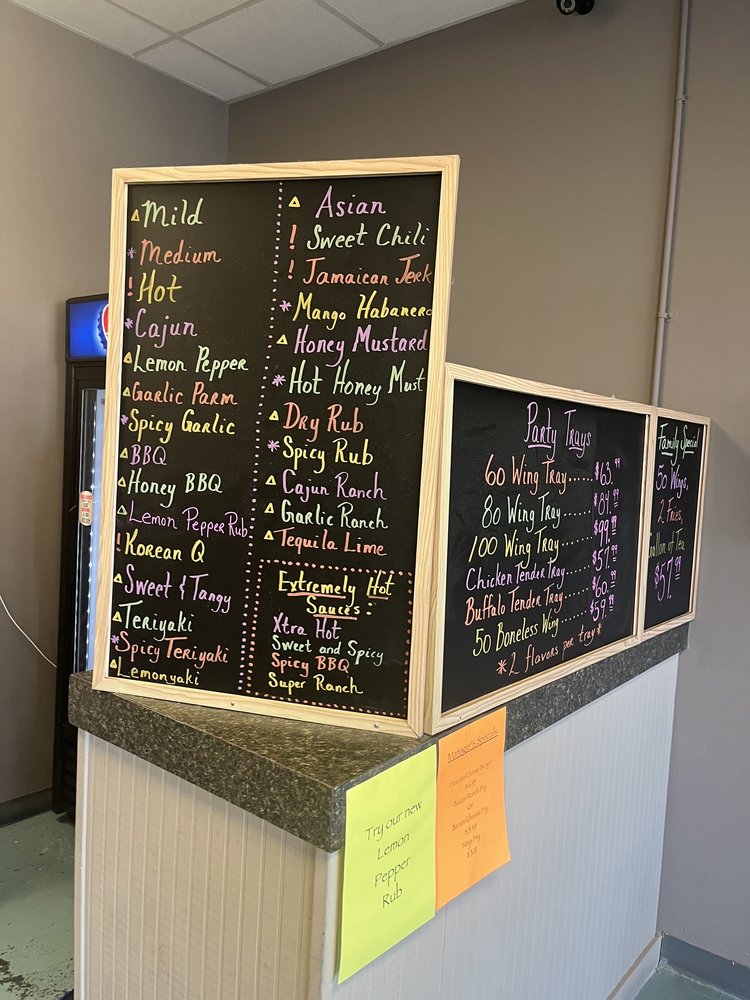 △ Mild
* Medium
! Hot
* Cajun
△ Lemon Pepper
△ Garlic Parm
* Spicy Garlic
△ BBQ
△ Honey BBQ
△ Lemon Pepper Rub
! Korean Q
△ Sweet & Tangy
△ Teriyaki
* Spicy Teriyaki
△ Lemonyaki
△ Asian
! Sweet Chili
! Jamaican Jerk
* Mango Habanero
△ Honey Mustard
* Hot Honey Must
△ Dry Rub
* Spicy Rub
△ Cajun Ranch
△ Garlic Ranch
△ Tequila Lime
Extremely Hot
Sauces:
Xtra Hot
Sweet and Spicy
Spicy BBQ
Super Ranch
Party Trays
60 Wing Tray...... $63.99
80 Wing Tray...... $84.99
100 Wing Tray...... $99.99
Chicken Tender Tray...... $57.99
Buffalo Tender Tray...... $60.99
50 Boneless Wing...... $59.99
*2 flavors per tray*
Family Special
50 Wings,
2 Fries,
Gallon of Tea
$57.99
Try our new
Lemon
Pepper
Rub
Manager's Specials
Pimento Cheese Burger
Bacon Ranch Fry
Or
Bacon Cheese Fry